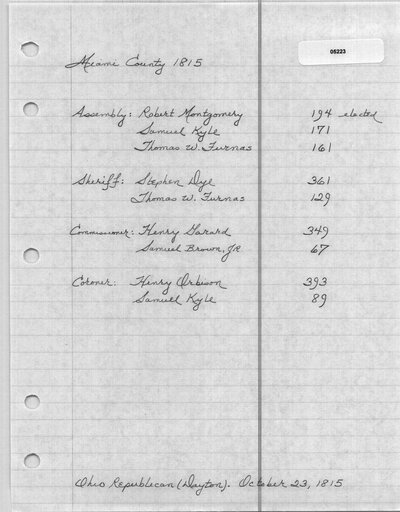 05223
Miami County 1815
Assembly: Robert Montgomery 194 elected
Samuel Kyle 171
Thomas W. Furnas 161
Sheriff: Stephen Dye 361
Thomas W. Furnas 129
Commissioner: Henry Garard 349
Samuel Brown, JR 67
Coroner: Henry Orbison 393
Samuel Kyle 89
Ohio Republican (Dayton). October 23, 1815